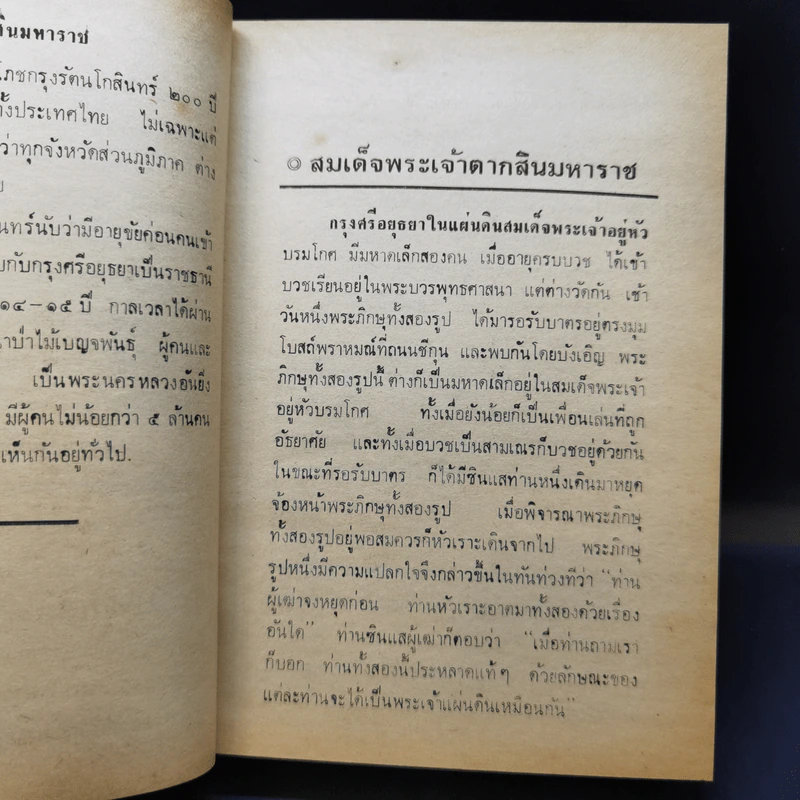 สินมหาราช
โภชกรุงรัตนโกสินทร์ ๒๐๐ ปี
ทั้งประเทศไทย ไม่เฉพาะแต่
ว่าทุกจังหวัดส่วนภูมิภาค ต่าง
นทร์นับว่ามีอายุขัยค่อนคนเข้า
บกับกรุงศรีอยุธยาเป็นราชธานี
๑๔–๑๕ ปี กาลเวลาได้ผ่าน
ป่าไม้เบญจพันธุ์ ผู้คนและ
เป็นพระนครหลวงอันยิ่ง
มีผู้คนไม่น้อยกว่า ๕ ล้านคน
เห็นกันอยู่ทั่วไป.
๏ สมเด็จพระเจ้าตากสินมหาราช
กรุงศรีอยุธยาในแผ่นดินสมเด็จพระเจ้าอยู่หัว
บรมโกศ มีมหาดเล็กสองคน เมื่ออายุครบบวช ได้เข้า
บวชเรียนอยู่ในพระบวรพุทธศาสนา แต่ต่างวัดกัน เช้า
วันหนึ่งพระภิกษุทั้งสองรูป ได้มารอรับบาตรอยู่ตรงมุม
โบสถ์พราหมณ์ที่ถนนชีกุน และพบกันโดยบังเอิญ พระ
ภิกษุทั้งสองรูปนี้ ต่างก็เป็นมหาดเล็กอยู่ในสมเด็จพระเจ้า
อยู่หัวบรมโกศ ทั้งเมื่อยังน้อยก็เป็นเพื่อนเล่นที่ถูก
อัธยาศัย และทั้งเมื่อบวชเป็นสามเณรก็บวชอยู่ด้วยกัน
ในขณะที่รอรับบาตร ก็ได้มีซินแสท่านหนึ่งเดินมาหยุด
จ้องหน้าพระภิกษุทั้งสองรูป เมื่อพิจารณาพระภิกษุ
ทั้งสองรูปอยู่พอสมควรก็หัวเราะเดินจากไป พระภิกษุ
รูปหนึ่งมีความแปลกใจจึงกล่าวขึ้นในทันท่วงทีว่า "ท่าน
ผู้เฒ่าจงหยุดก่อน ท่านหัวเราะอาตมาทั้งสองด้วยเรื่อง
อันใด" ท่านซินแสผู้เฒ่าก็ตอบว่า "เมื่อท่านถามเรา
ก็บอก ท่านทั้งสองนี้ประหลาดแท้ๆ ด้วยลักษณะของ
แต่ละท่านจะได้เป็นพระเจ้าแผ่นดินเหมือนกัน"